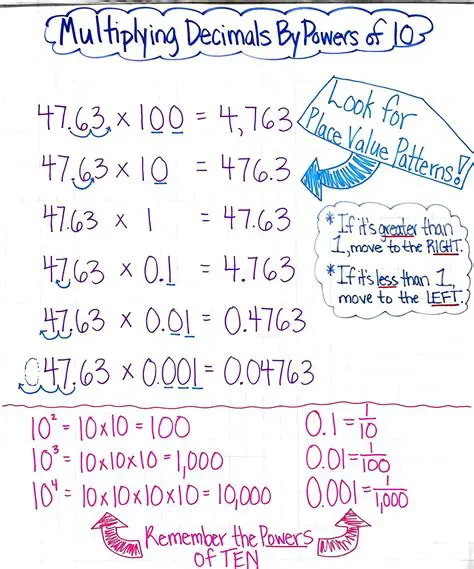 Multiplying Decimals By Powers of 10
47.63 x 100 = 4,763
47.63 x 10 = 476.3
47.63 x 1 = 47.63
47.63 x 0.1 = 4.763
47.63 x 0.01 = 0.4763
047.63 x 0.001 = 0.04763
Look for
Place Value Patterns!
* If it's greater than
1, move to the RIGHT.
* If it's less than 1,
move to the LEFT.
10² = 10x10 = 100
10³ = 10x10x10 = 1,000
10⁴ = 10x10x10x10 = 10,000
0.1 = 1/10
0.01 = 1/100
0.001 = 1/1,000
Remember the Powers
of TEN